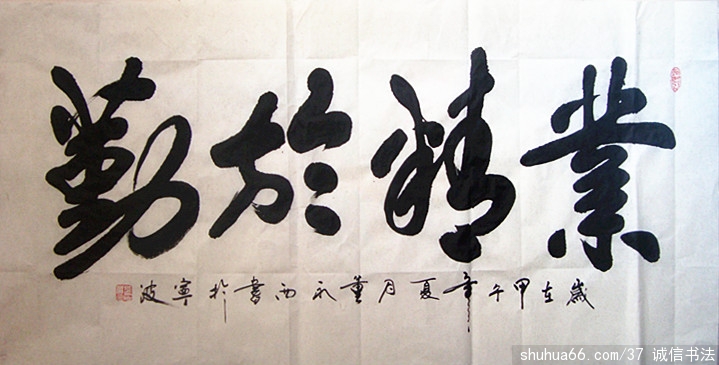 業精於勤
歲在甲午年夏月董永西書於寧波
shuhua66.com/37 诚信书法